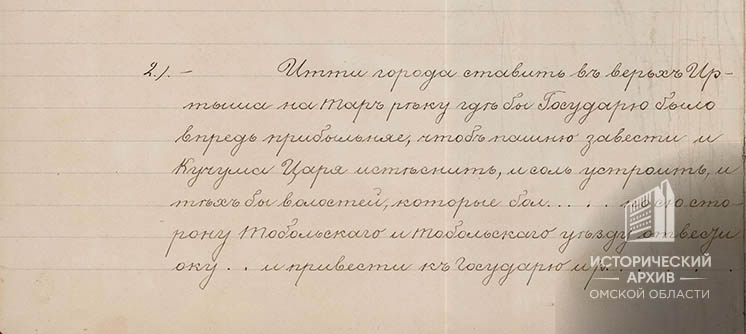 2/. – Итти города ставить въ верьхъ Ир-
тыша на Таръ рѣку гдѣ бы Государю было
впредь прибыльняе, чтобъ пашню завести и
Кучума Царя истѣснить, и соль устроить, и
тѣхъ бы волостей, которые бол..... по сю сто-
рону Тобольскаго и Тобольскаго уѣзду отвести
оку.. и привести къ Государю
ИСТОРИЧЕСКИЙ
АРХИВ
ОМСКОЙ ОБЛАСТИ